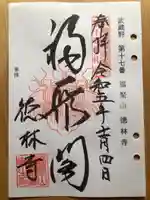 武蔵野 第十七番 福聚山 徳林寺
奉拝 令和五年 月四日
福聚閣
徳林寺